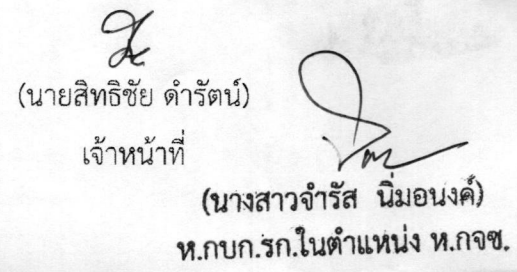 (นายสิทธิชัย ดำรัตน์)
เจ้าหน้าที่
(นางสาวจำรัส นิ่มอนงค์)
ห.กบก.รก.ในตำแหน่ง ห.กจซ.